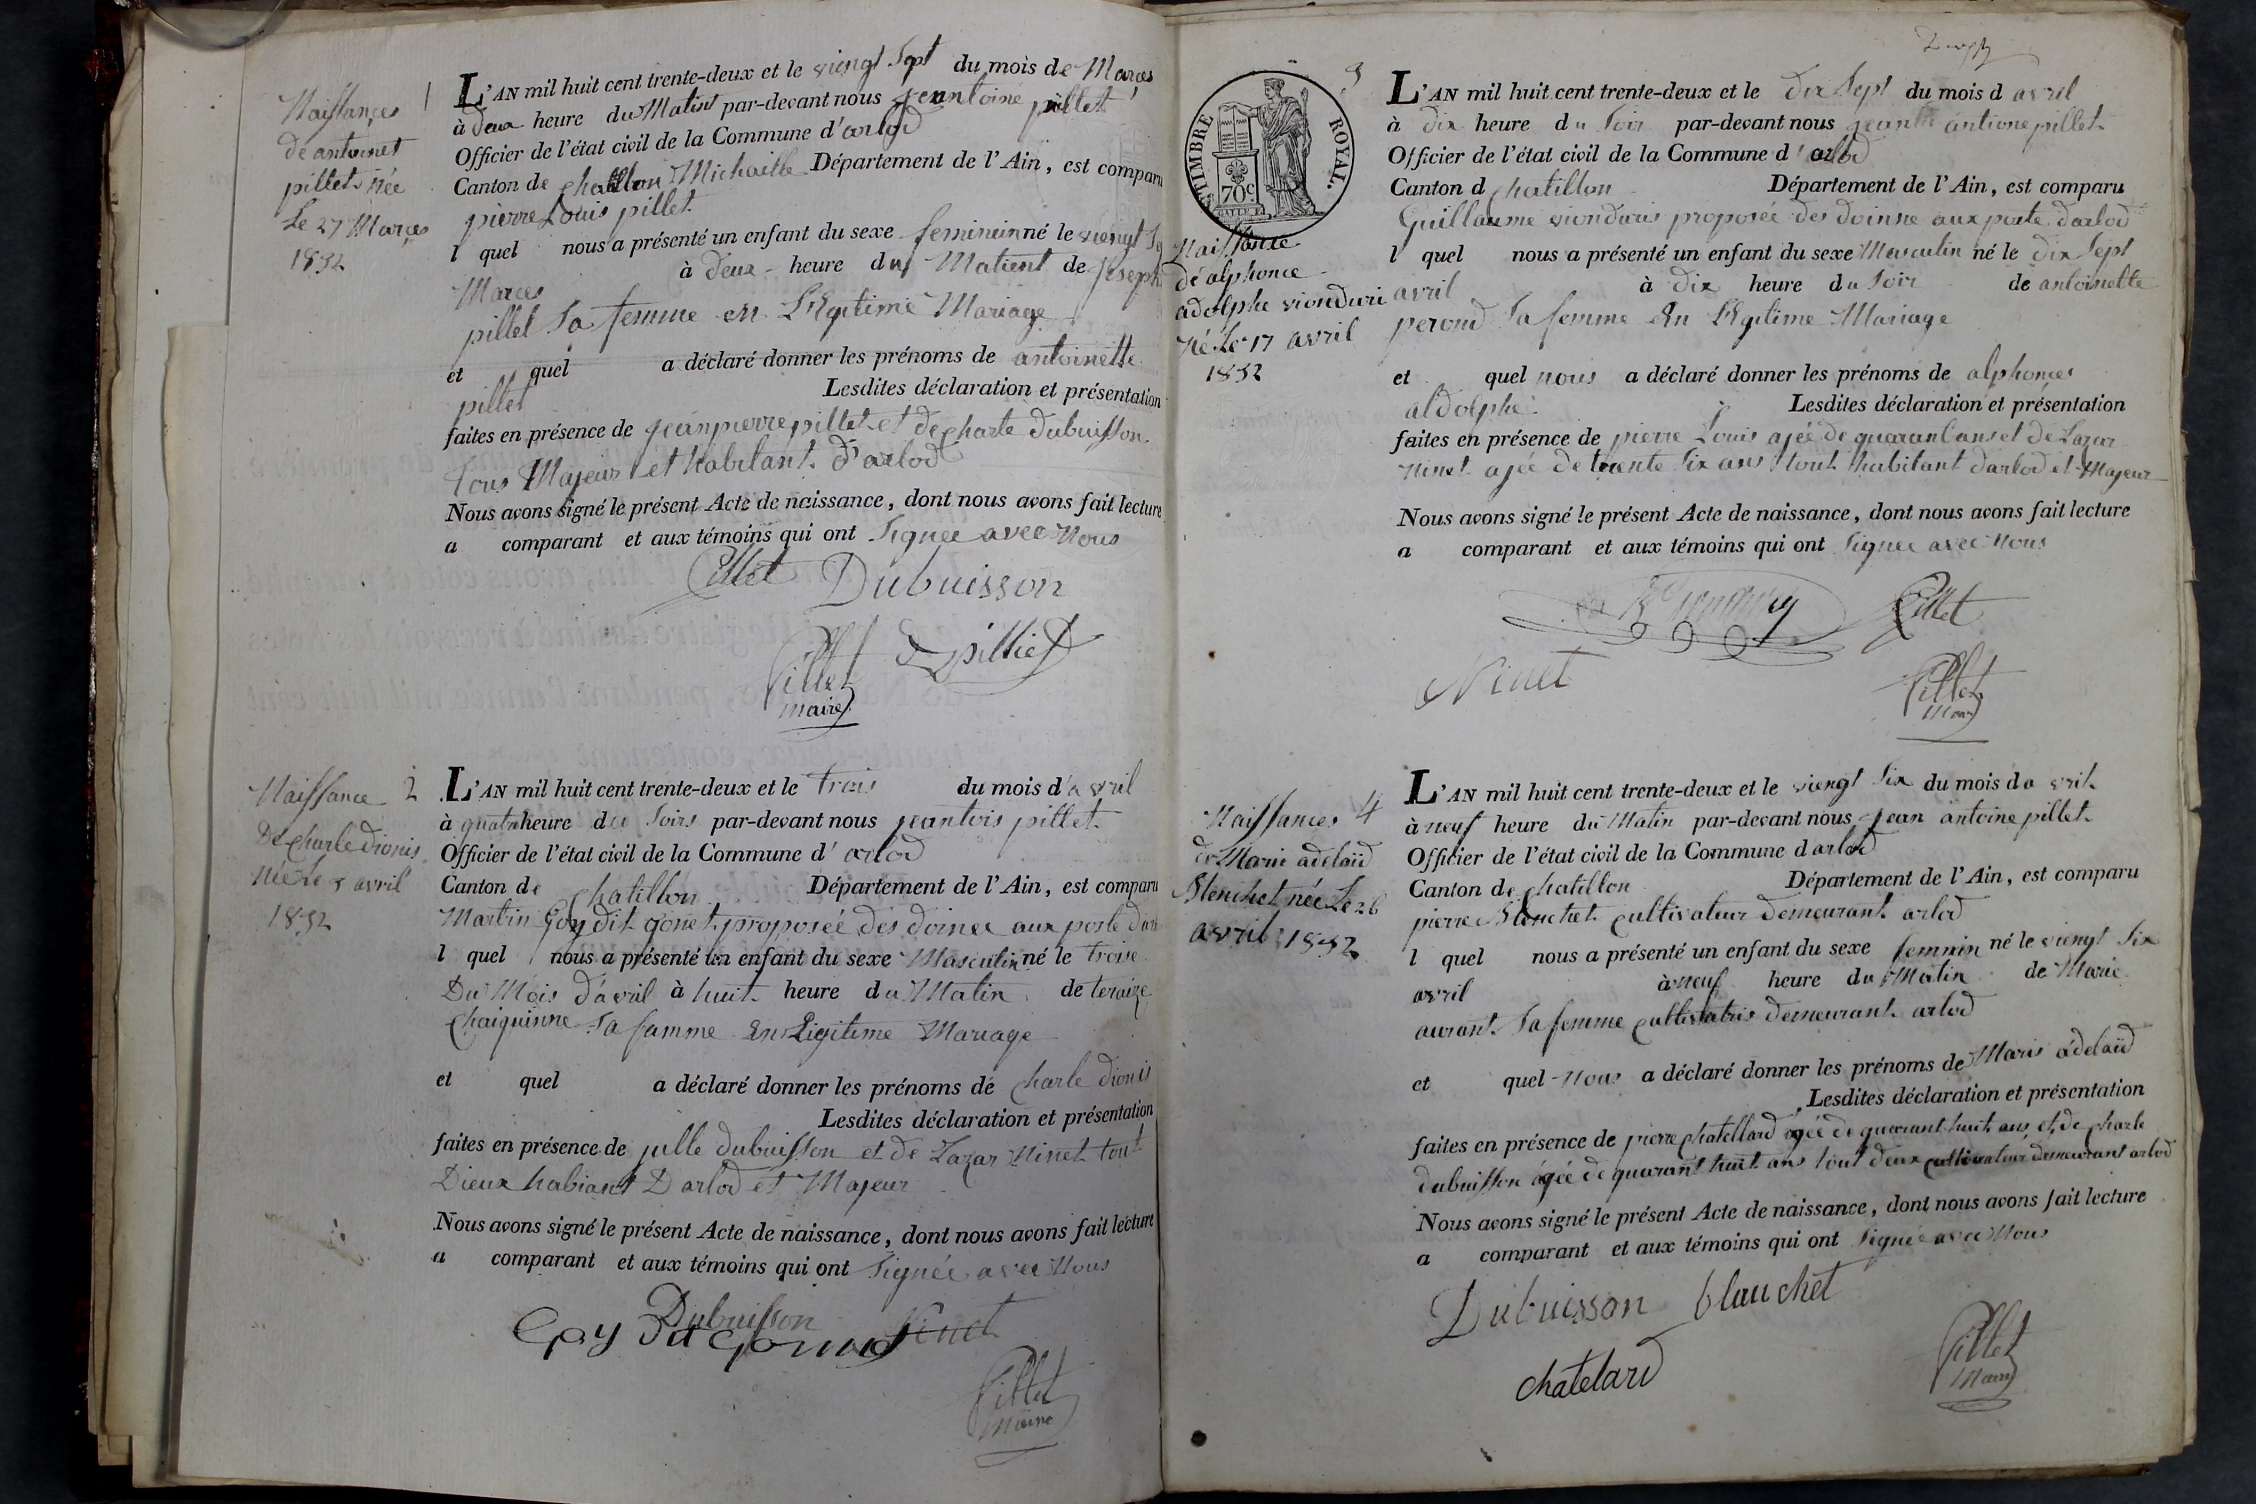 Naissances 1
de antoinet
pillet née
Le 27 Marces
1832
L'AN mil huit cent trente-deux et le viengt Sept du mois de Marces
à deux heure du Matint par-devant nous jeantoine pillet
Officier de l'état civil de la Commune d'arlod
Canton de chatillon Michaille Département de l'Ain, est comparu
pierre Louis pillet
l quel nous a présenté un enfant du sexe femineinné le viengt
Marces à deux heure du Matient de joseph
pillet Sa femme en Légitime Mariage
et quel a déclaré donner les prénoms de antoinette
pillet Lesdites déclaration et présentation
faites en présence de jeanpierre pillet et de charle dubuisson
tous Majeur et habitant d'arlod
Nous avons signé le présent Acte de naissance, dont nous avons fait lecture
a comparant et aux témoins qui ont Signée avec Nous
Pillet Dubuisson
Pillet pilliet
maire
Naissance 2
De charle dionis
née Le 3 avril
1832
L'AN mil huit cent trente-deux et le trois du mois d'avril
à quatreheure du Soirs par-devant nous jeantois pillet
Officier de l'état civil de la Commune d'arlod
Canton de chatillon Département de l'Ain, est comparu
Martin Goy dit gonet proposée des doinee aux poste
l quel nous a présenté un enfant du sexe Masculin né le troise
Du Mois d'avril à huit heure du Matin de teraize
chaiquinne Sa famme En Légitime Mariage
et quel a déclaré donner les prénoms de charle dionis
Lesdites déclaration et présentation
faites en présence de julle dubuisson et de Lazar Ninet tout
Dieux habiant D arlod et Majeur
Nous avons signé le présent Acte de naissance, dont nous avons fait lecture
a comparant et aux témoins qui ont Signée avec Nous
Dubuisson Ninet
Goy dit gonnet
Pillet
Maire
TIMBRE ROYAL.
70c
3
Naissance
de alphonce
adolphe vionduri
né Le 17 avril
1832
L'AN mil huit cent trente-deux et le dix Sept du mois d avril
à dix heure du Soir par-devant nous jean antione pillet
Officier de l'état civil de la Commune d'arlod
Canton d chatillon Département de l'Ain, est comparu
Guillaume vionduris proposée des doinne aux poste darlod
l quel nous a présenté un enfant du sexe Masculin né le dix Sept
avril à dix heure du Soir de antoinette
perond Sa femme En Légitime Mariage
et quel nous a déclaré donner les prénoms de alphonces
aldolphe Lesdites déclaration et présentation
faites en présence de pierre Louis ajée de quarant ans et de Lazar
Ninet ajée de trante Six ans tout habitant darlod et Majeur
Nous avons signé le présent Acte de naissance, dont nous avons fait lecture
a comparant et aux témoins qui ont Signée avec Nous
Pillet
Ninet Pillet
Maire
Naissances 4
de Marie adelaïd
Blenchet née Le 26
avril 1832
L'AN mil huit cent trente-deux et le viengt Six du mois da vril
à neuf heure du Matin par-devant nous jean antoine pillet
Officier de l'état civil de la Commune d arlod
Canton de chatillon Département de l'Ain, est comparu
pierre Blenchet cultivateur demeurant arlod
l quel nous a présenté un enfant du sexe femnin né le viengt Six
avril à neuf heure du Matin de Marie
aurant Sa femme cultivatris demeurant arlod
et quel Nous a déclaré donner les prénoms de Maris adelaïd
Lesdites déclaration et présentation
faites en présence de pierre chatellard agée de quarant huit ans et de charle
dubuisson âgée de quarant huit ans tout deux cultivateur demeurant arlod
Nous avons signé le présent Acte de naissance, dont nous avons fait lecture
a comparant et aux témoins qui ont Signée avec Nous
Dubuisson blanchet
chatelard Pillet
Maire